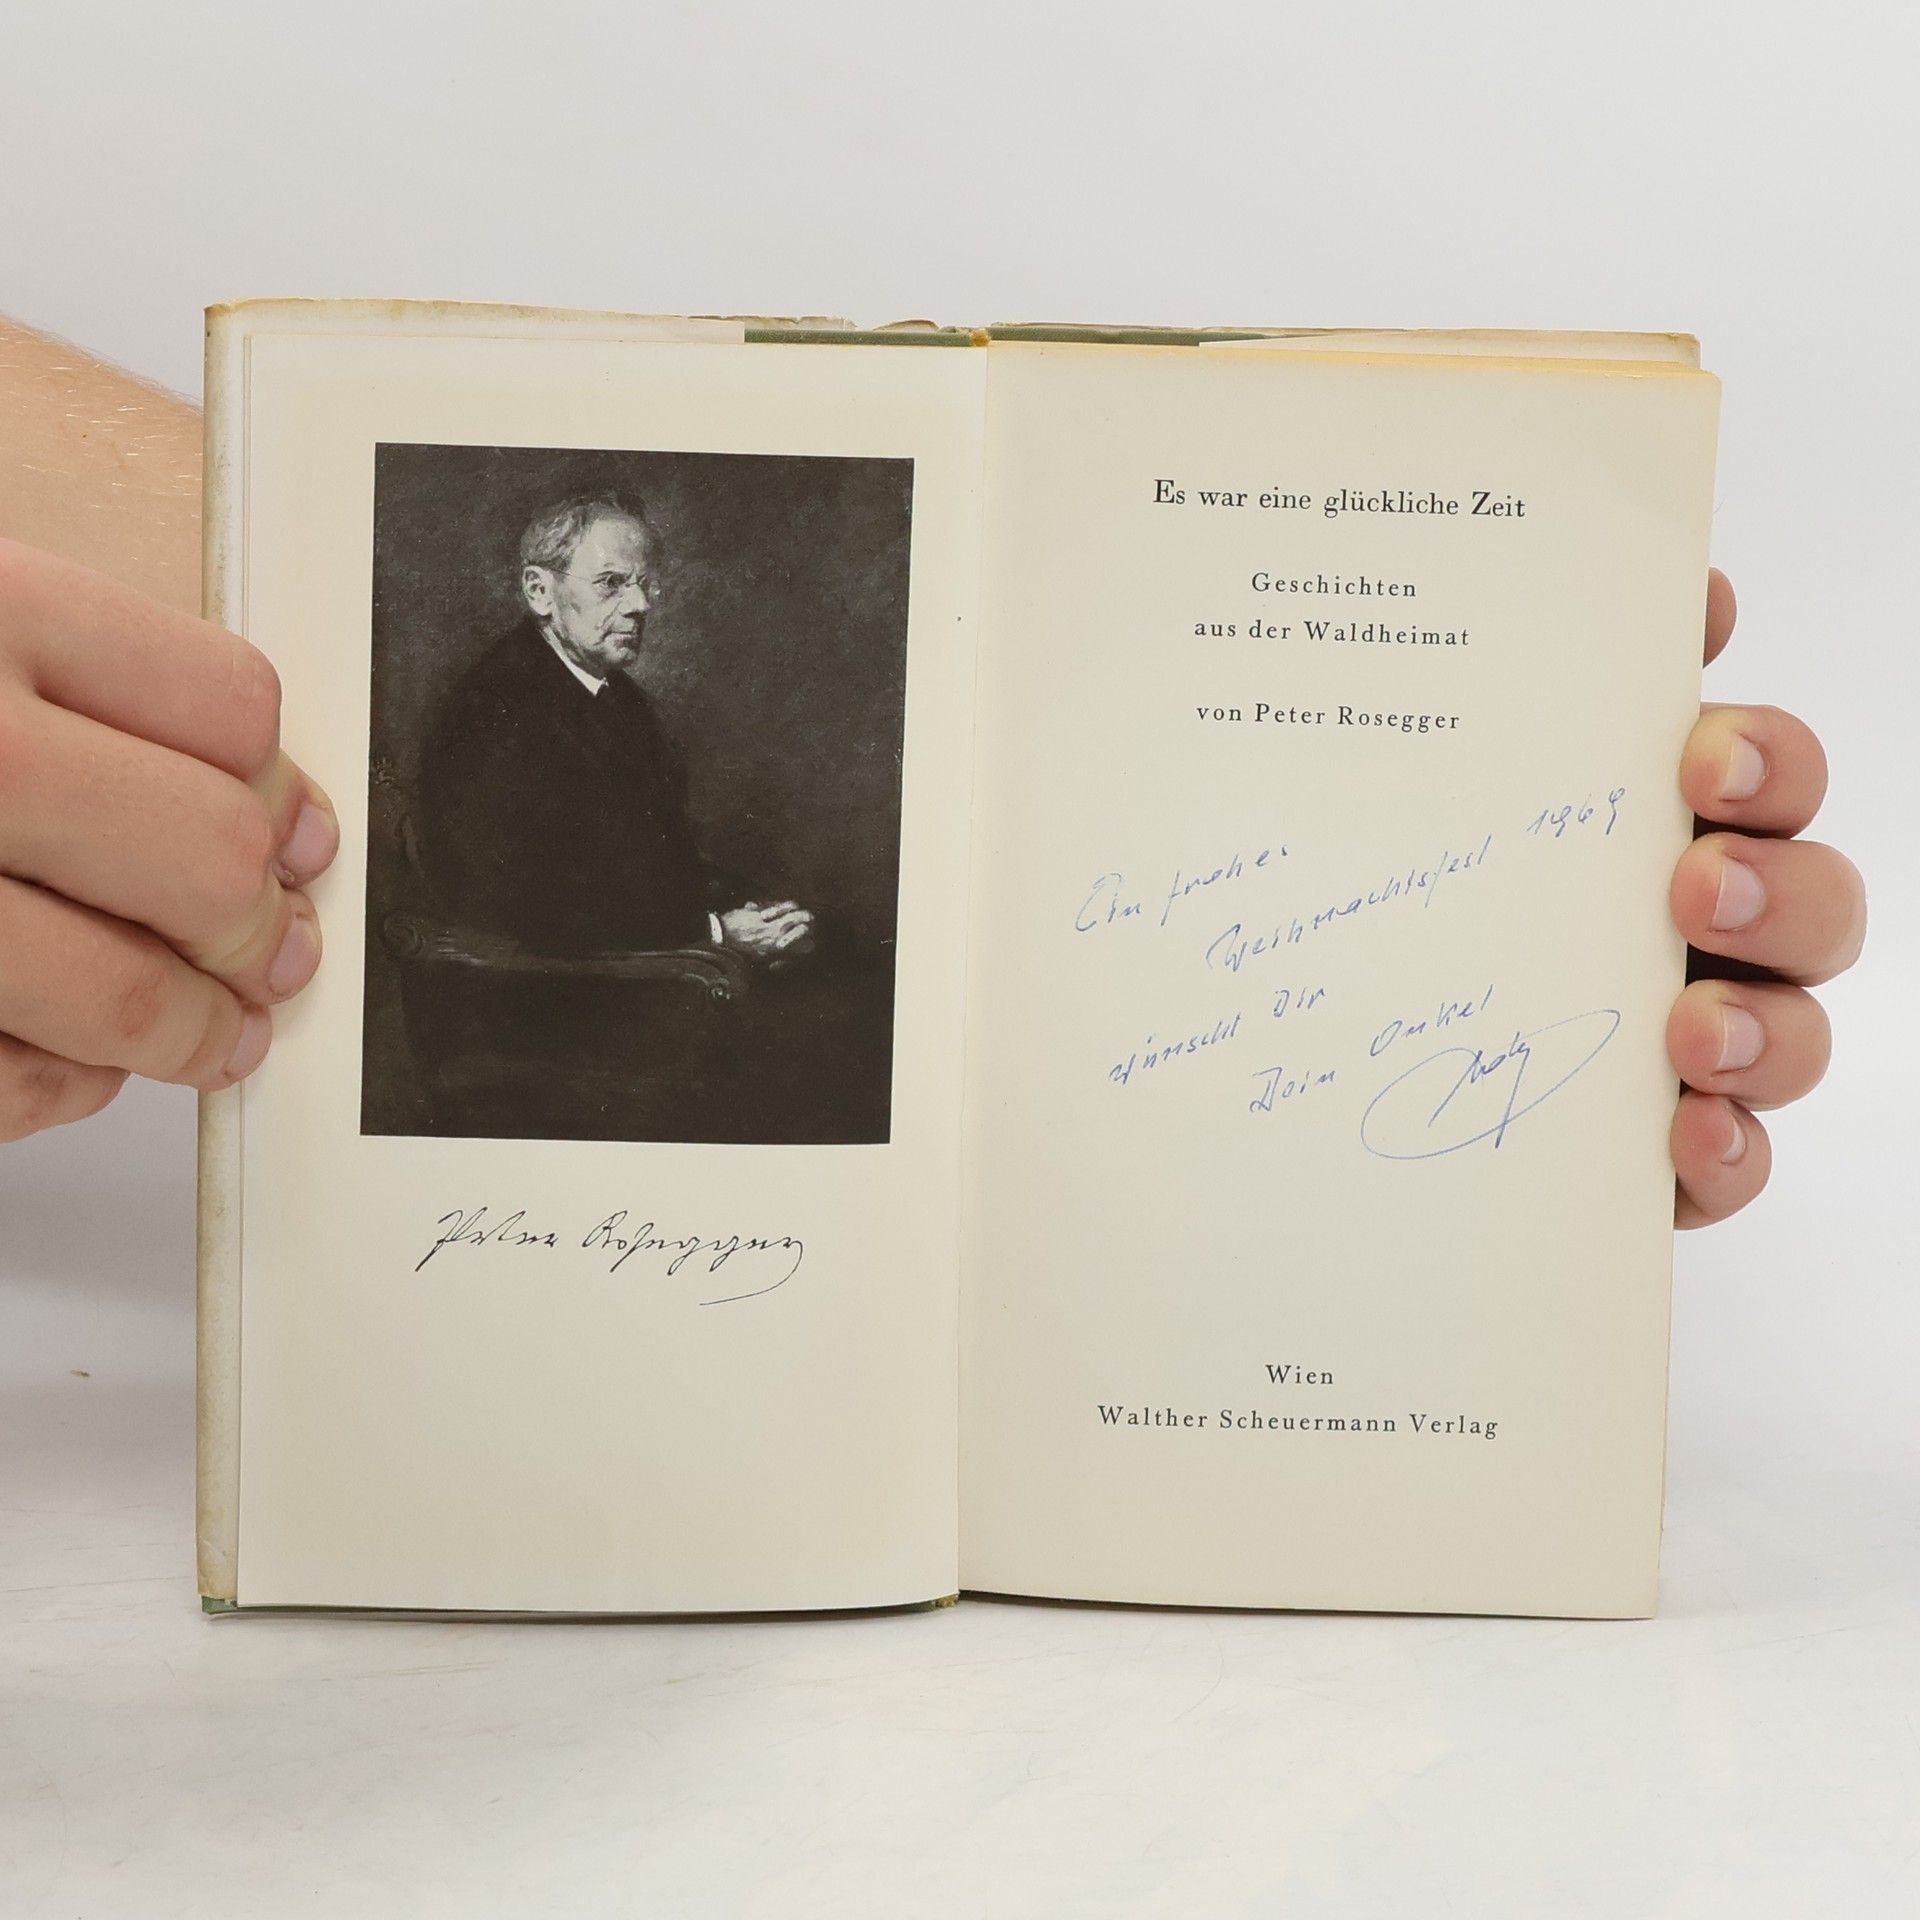 Peter Rosegger
Es war eine glückliche Zeit
Geschichten
aus der Waldheimat
von Peter Rosegger
Ein frohes
Weihnachtsfest 1969
wünscht Dir
Dein Onkel
Wien
Walther Scheuermann Verlag